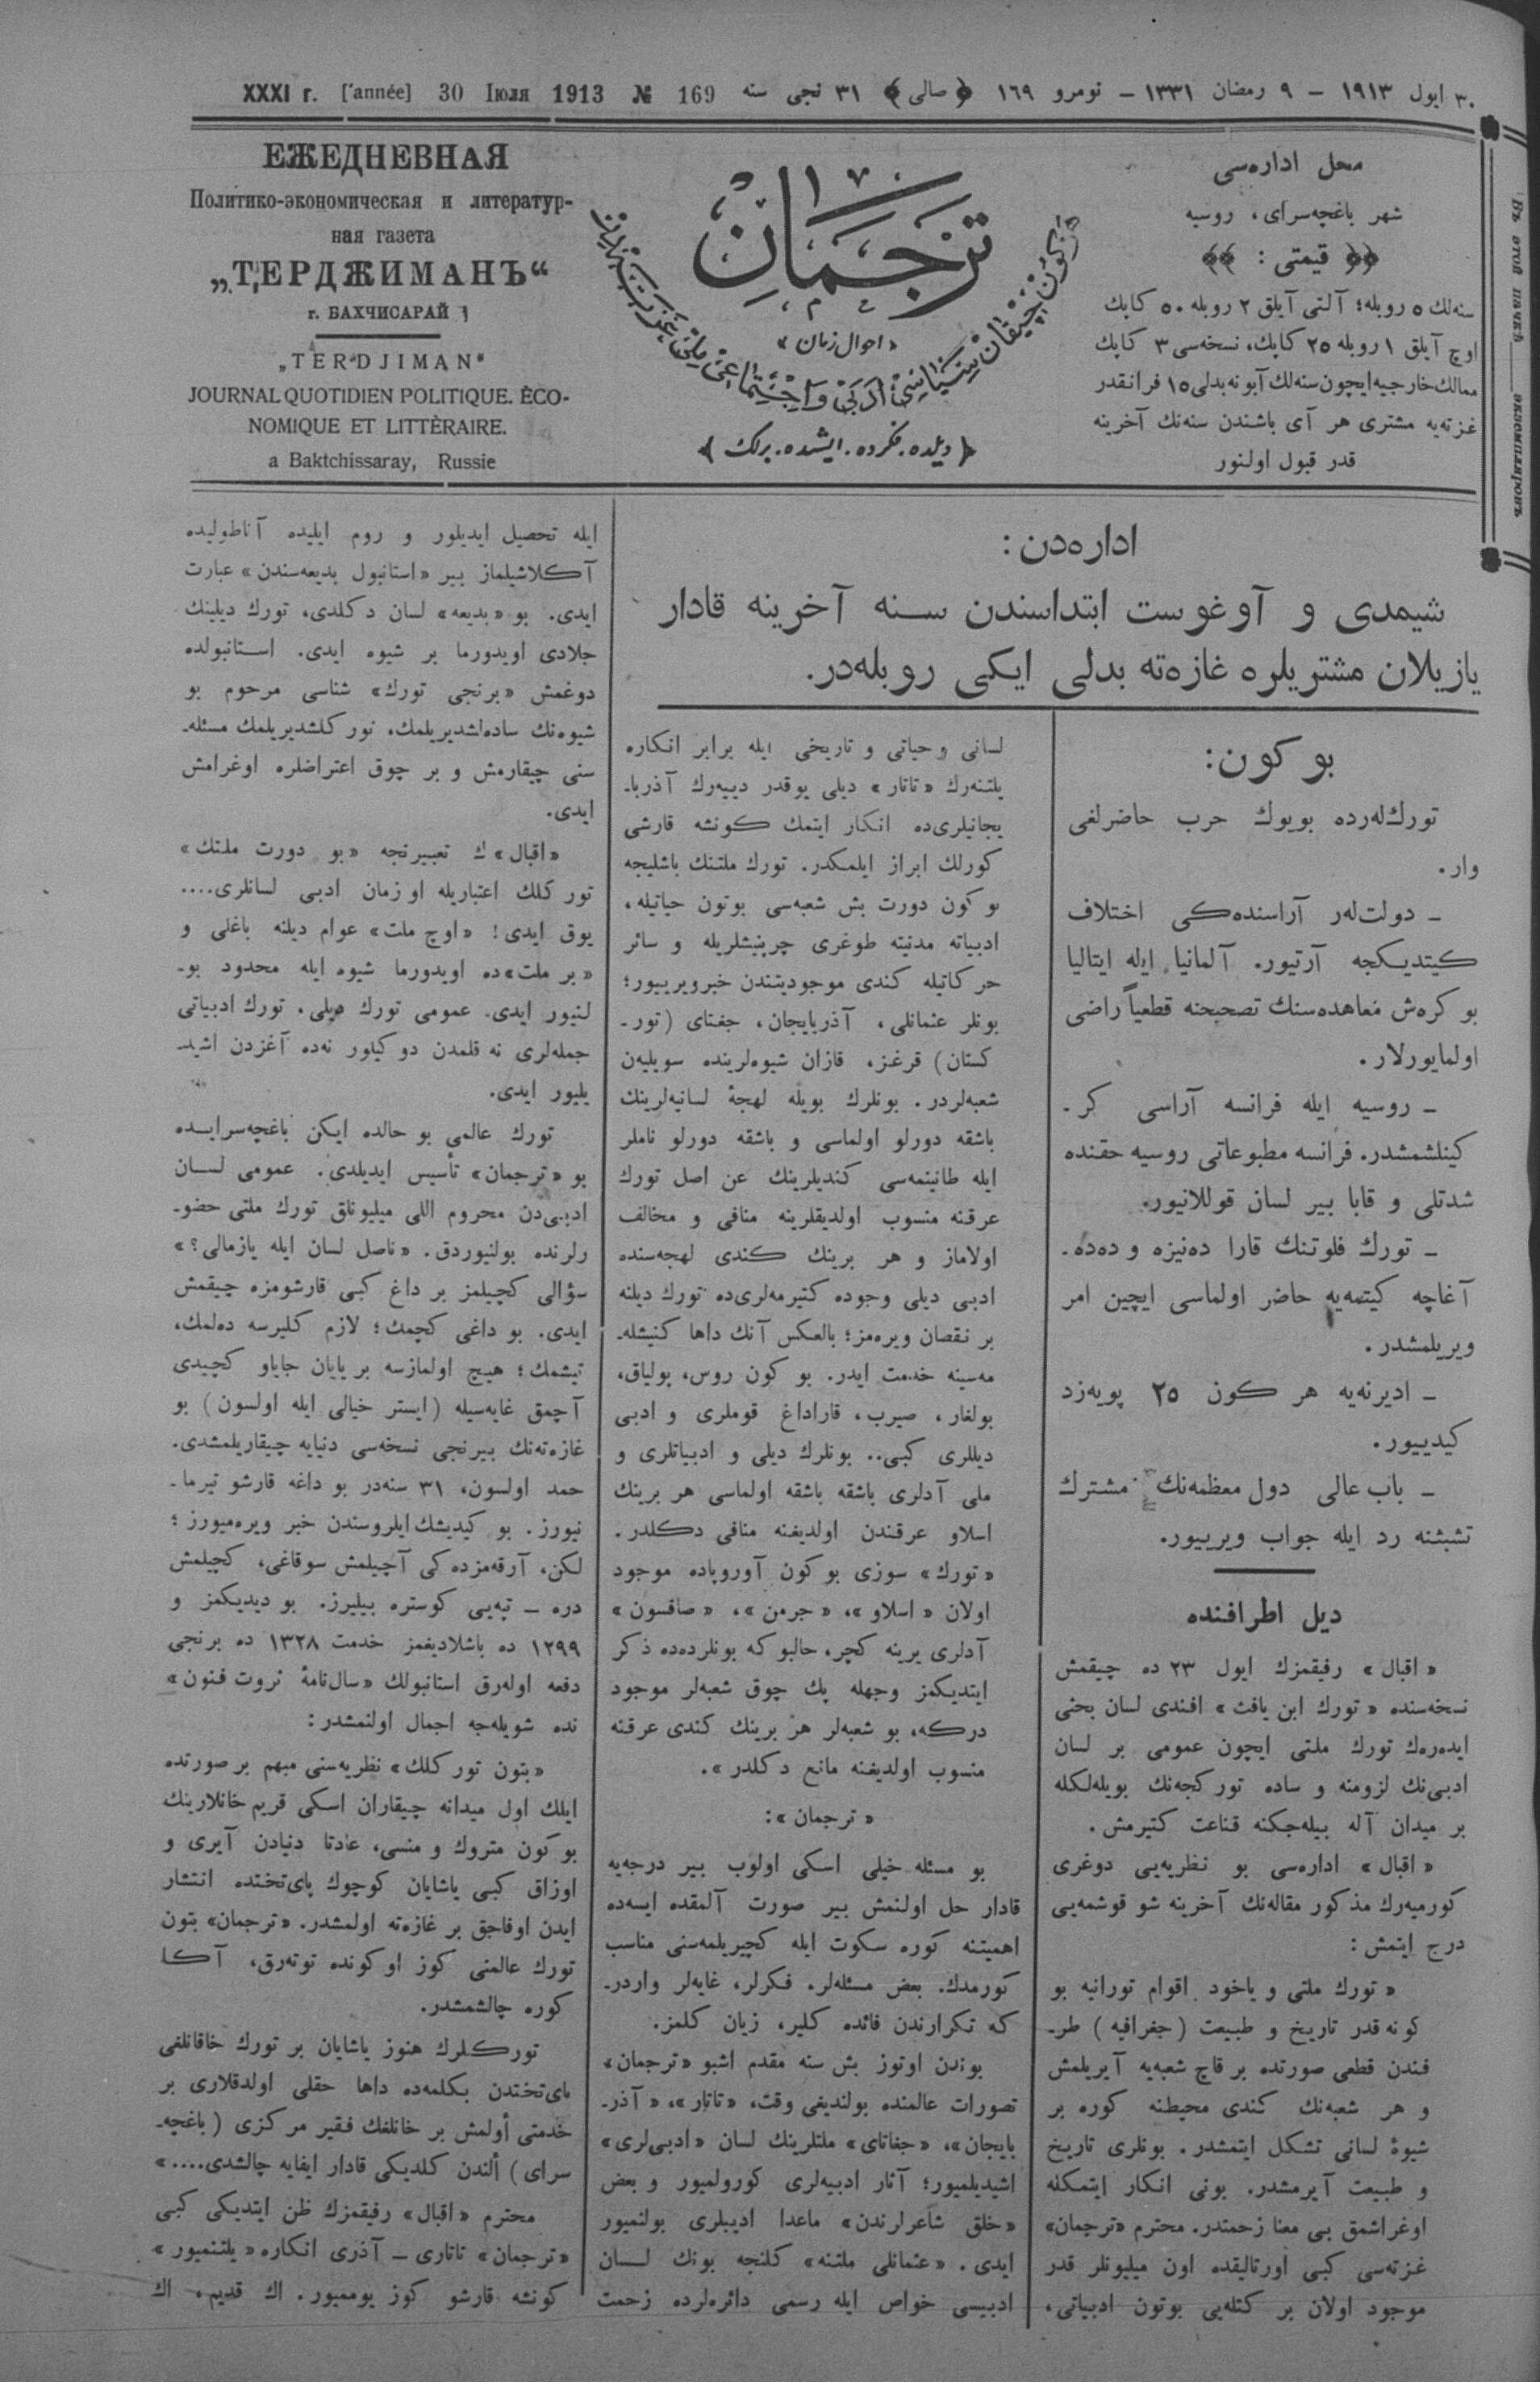 XXXI г. [′année] 30 Іюля 1913 № 169 ٣١ نجی سنه ﴿صالی﴾ ٣٠ ایول ١٩١٣ – ٩ رمضان ١٣٣١ – نومرو ١٦٩
ЕЖЕДНЕВНАЯ
Политико-экономическая и литератур-
ная газета
„ТЕРДЖИМАНЪ“
г. БАХЧИСАРАЙ
„TERDJIMAN“
JOURNAL QUOTIDIEN POLITIQUE. ÈCO-
NOMIQUE ET LITTÈRAIRE.
a Baktchissaray, Russie
ترجمان
«احوال زمان»
﴿دیلده. فکرده. ایشده. برلك﴾
محل اداره‌سی
شهر باغچه‌سرای، روسیه
﴿﴿ قیمتی : ﴾﴾
سنه‌لك ٥ روبله؛ آلتی آیلق ٢ روبله ٥٠ كاپك
اوچ آیلق ١ روبله ٢٥ كاپك، نسخه‌سی ٣ كاپك
ممالك خارجیه ایچون سنه‌لك آبونه بدلی ١٥ فرانقدر
غزته‌یه مشتری هر آی باشندن سنه‌نك آخرینه
قدر قبول اولنور
Въ этой пачкѣ ــ экземпляровъ
اداره‌دن:
شیمدی و آوغوست ابتداسندن سنه آخرینه قادار
یازیلان مشتریلره غازه‌ته بدلی ایكی روبله‌در.
بو كون:
تورك‌له‌رده بویوك حرب حاضرلغی
وار.
ـ دولت‌لەر آراسنده‌كی اختلاف
كیتدیكجه آرتیور. آلمانیا ایله ایتالیا
بو كره‌ش معاهده‌سنك تصحیحنه قطعیاً راضی
اولمایورلار.
ـ روسیه ایله فرانسه آراسی كر ـ
كینلشمشدر. فرانسه مطبوعاتی روسیه حقنده
شدتلی و قابا بیر لسان قوللانیور.
ـ تورك فلوتنك قارا ده‌نیزه و ده‌ده ـ
آغاچه كیتمه‌یه حاضر اولماسی ایچین امر
ویریلمشدر.
ـ ادیرنه‌یه هر كون ٢٥ پویه‌زد
كیدییور.
ـ باب عالی دول معظمه‌نك مشترك
تشبثنه رد ایله جواب ویرییور.
دیل اطرافنده
«اقبال» رفیقمزك ایول ٢٣ ده چیقمش
نسخه‌سنده «تورك ابن یافث» افندی لسان بحثی
ایده‌ره‌ك تورك ملتی ایچون عمومی بر لسان
ادبی‌نك لزومنه و ساده توركجه‌نك بویله‌لكله
بر میدان آله بیله‌جكنه قناعت كتیرمش.
«اقبال» اداره‌سی بو نظریه‌یی دوغری
كورمیه‌رك مذكور مقاله‌نك آخرینه شو قوشمه‌یی
درج ایتمش:
«تورك ملتی و یاخود اقوام تورانیه بو
كونه قدر تاریخ و طبیعت (جغرافیه) طر ـ
فندن قطعی صورتده بر قاچ شعبه‌یه آیریلمش
و هر شعبه‌نك كندی محیطنه كوره بر
شیوۀ لسانی تشكل ایتمشدر. بونلری تاریخ
و طبیعت آیرمشدر. بونی انكار ایتمكله
اوغراشمق بی معنا زحمتدر. محترم «ترجمان»
غزته‌سی كبی اورتالیقده اون میلیونلر قدر
موجود اولان بر كتله‌یی بوتون ادبیاتی،
لسانی و حیاتی و تاریخی ایله برابر انكاره
یلتنه‌رك «تاتار» دیلی یوقدر دییه‌رك آذربا ـ
یجانیلری‌ده انكار ایتمك كونشه قارشی
كورلك ابراز ایلمكدر. تورك ملتنك باشلیجه
بو كون دورت بش شعبه‌سی بوتون حیاتیله،
ادبیاته مدنیته طوغری چرپنیشلریله و سائر
حركاتیله كندی موجودیتندن خبر ویرییور؛
بونلر عثمانلی، آذربایجان، جغتای (تور ـ
كستان) قرغز، قازان شیوه‌لرینده سویلیه‌ن
شعبه‌لردر. بونلرك بویله لهجۀ لسانیه‌لرینك
باشقه دورلو اولماسی و باشقه دورلو ناملر
ایله طانینمه‌سی كندیلرینك عن اصل تورك
عرقنه منسوب اولدیقلرینه منافی و مخالف
اولاماز و هر برینك كندی لهجه‌سنده
ادبی دیلی وجوده كتیرمه‌لری‌ده تورك دیلنه
بر نقصان ویره‌مز؛ بالعكس آنك داها كنیشله ـ
مه‌سینه خدمت ایدر. بو كون روس، پولیاق،
بولغار، صیرب، قاراداغ قوملری و ادبی
دیللری كبی.. بونلرك دیلی و ادبیاتلری و
ملی آدلری باشقه باشقه اولماسی هر برینك
اسلاو عرقندن اولدیغنه منافی دكلدر.
«تورك» سوزی بو كون آوروپاده موجود
اولان «اسلاو»، «جرمن»، «صاقسون»
آدلری یرینه كچر، حالبو كه بونلرده‌ده ذكر
ایتدیكمز وجهله پك چوق شعبه‌لر موجود
دركه، بو شعبه‌لر هر برینك كندی عرقنه
منسوب اولدیغنه مانع دكلدر».
«ترجمان»:
بو مسئله خیلی اسكی اولوب بیر درجه‌یه
قادار حل اولنمش بیر صورت آلمقده ایسه‌ده
اهمیتنه كوره سكوت ایله كچیریلمه‌سنی مناسب
كورمدك. بعض مسئله‌لر، فكرلر، غایه‌لر واردر ـ
كه تكرارندن فائده كلیر، زیان كلمز.
بوندن اوتوز بش سنه مقدم اشبو «ترجمان»
تصورات عالمنده بولندیغی وقت، «تاتار»، «آذر ـ
بایجان»، «جغاتای» ملتلرینك لسان «ادبی‌لری»
اشیدیلمیور؛ آثار ادبیه‌لری كورولمیور و بعض
«خلق شاعرلرندن» ماعدا ادیبلری بولنمیور
ایدی. «عثمانلی ملتنه» كلنجه بونك لسان
ادبیسی خواص ایله رسمی دائره‌لرده زحمت
ایله تحصیل ایدیلور و روم ایلیده آناطولیده
آكلاشیلماز بیر «استانبول بدیعه‌سندن» عبارت
ایدی. بو «بدیعه» لسان دكلدی، تورك دیلینك
جلادی اویدورما بر شیوه ایدی. استانبولده
دوغمش «برنجی تورك» شناسی مرحوم بو
شیوه‌نك ساده‌لشدیریلمك، توركلشدیریلمك مسئله ـ
سنی چیقارمش و بر چوق اعتراضلره اوغرامش
ایدی.
«اقبال» ك تعبیرنجه «بو دورت ملتك»
توركلك اعتباریله او زمان ادبی لسانلری....
یوق ایدی! «اوچ ملت» عوام دیلنه باغلی و
«بر ملت»ده اویدورما شیوه ایله محدود بو ـ
لنیور ایدی. عمومی تورك دیلی، تورك ادبیاتی
جمله‌لری نه قلمدن دوكیلور نه‌ده آغزدن اشید ـ
یلیور ایدی.
تورك عالمی بو حالده ایكن باغچه‌سرایده
بو «ترجمان» تأسیس ایدیلدی. عمومی لسان
ادبی‌دن محروم اللی میلیونلق تورك ملتی حضو ـ
رلرنده بولنیوردق. «ناصل لسان ایله یازمالی؟»
سؤالی كچیلمز بر داغ كبی قارشومزه چیقمش
ایدی. بو داغی كچمك؛ لازم كلیرسه ده‌لمك،
تیشمك؛ هیچ اولمازسه بر یایان جایاو كچیدی
آچمق غایه‌سیله (ایستر خیالی ایله اولسون) بو
غازه‌ته‌نك بیرنجی نسخه‌سی دنیایه چیقاریلمشدی.
حمد اولسون، ٣١ سنه‌در بو داغه قارشو تیرما ـ
نیورز. بو كیدیشك ایلروسندن خبر ویره‌میورز؛
لكن، آرقه‌مزده‌كی آچیلمش سوقاغی، كچیلمش
دره ـ تپه‌یی كوستره بیلیرز. بو دیدیكمز و
١٢٩٩ ده باشلادیغمز خدمت ١٣٢٨ ده برنجی
دفعه اوله‌رق استانبولك «سال‌نامۀ ثروت فنون»
نده شویله‌جه اجمال اولنمشدر:
«بتون توركلك» نظریه‌سنی مبهم بر صورتده
ایلك اول میدانه چیقاران اسكی قریم خانلارینك
بو كون متروك و منسی، عادتا دنیادن آیری و
اوزاق كبی یاشایان كوچوك پای‌تختده انتشار
ایدن اوفاجق بر غازه‌ته اولمشدر. «ترجمان» بتون
تورك عالمنی كوز اوكونده توته‌رق، آكا
كوره چالشمشدر.
توركلرك هنوز یاشایان بر تورك خاقانلغی
پای‌تختدن بكلمه‌ده داها حقلی اولدقلاری بر
خدمتی أولمش بر خانلغك فقیر مركزی (باغچه ـ
سرای) ألندن كلدیكی قادار ایفایه چالشدی....»
محترم «اقبال» رفیقمزك ظن ایتدیكی كبی
«ترجمان» تاتاری ـ آذری انكاره «یلتنمیور»
كونشه قارشو كوز یومیور. اك قدیم، اك